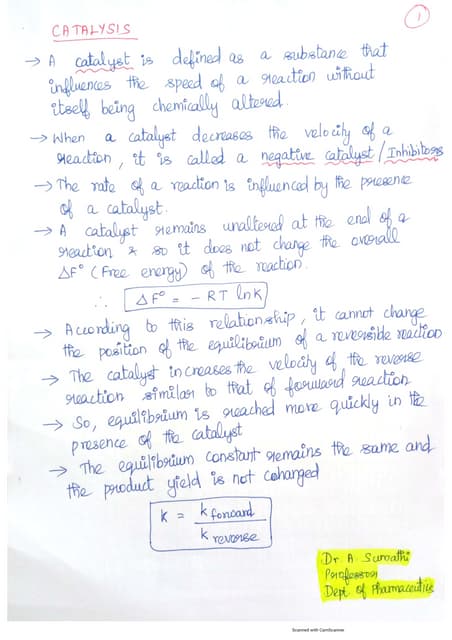 1
CATALYSIS
→ A catalyst is defined as a substance that
influences the speed of a reaction without
itself being chemically altered.
→ When a catalyst decreases the velocity of a
reaction, it is called a negative catalyst / Inhibitors
→ The rate of a reaction is influenced by the presence
of a catalyst.
→ A catalyst remains unaltered at the end of a
reaction & so it does not change the overall
ΔF° (Free energy) of the reaction.
∴ ΔF° = - RT lnK
→ According to this relationship, it cannot change
the position of the equilibrium of a reversible reaction
→ The catalyst increases the velocity of the reverse
reaction similar to that of forward reaction
→ So, equilibrium is reached more quickly in the
presence of the catalyst
→ The equilibrium constant remains the same and
the product yield is not cohanged
K = k forward
k reverse
Dr A. Sumathi
Professor
Dept of Pharmaceutics
Scanned with CamScanner